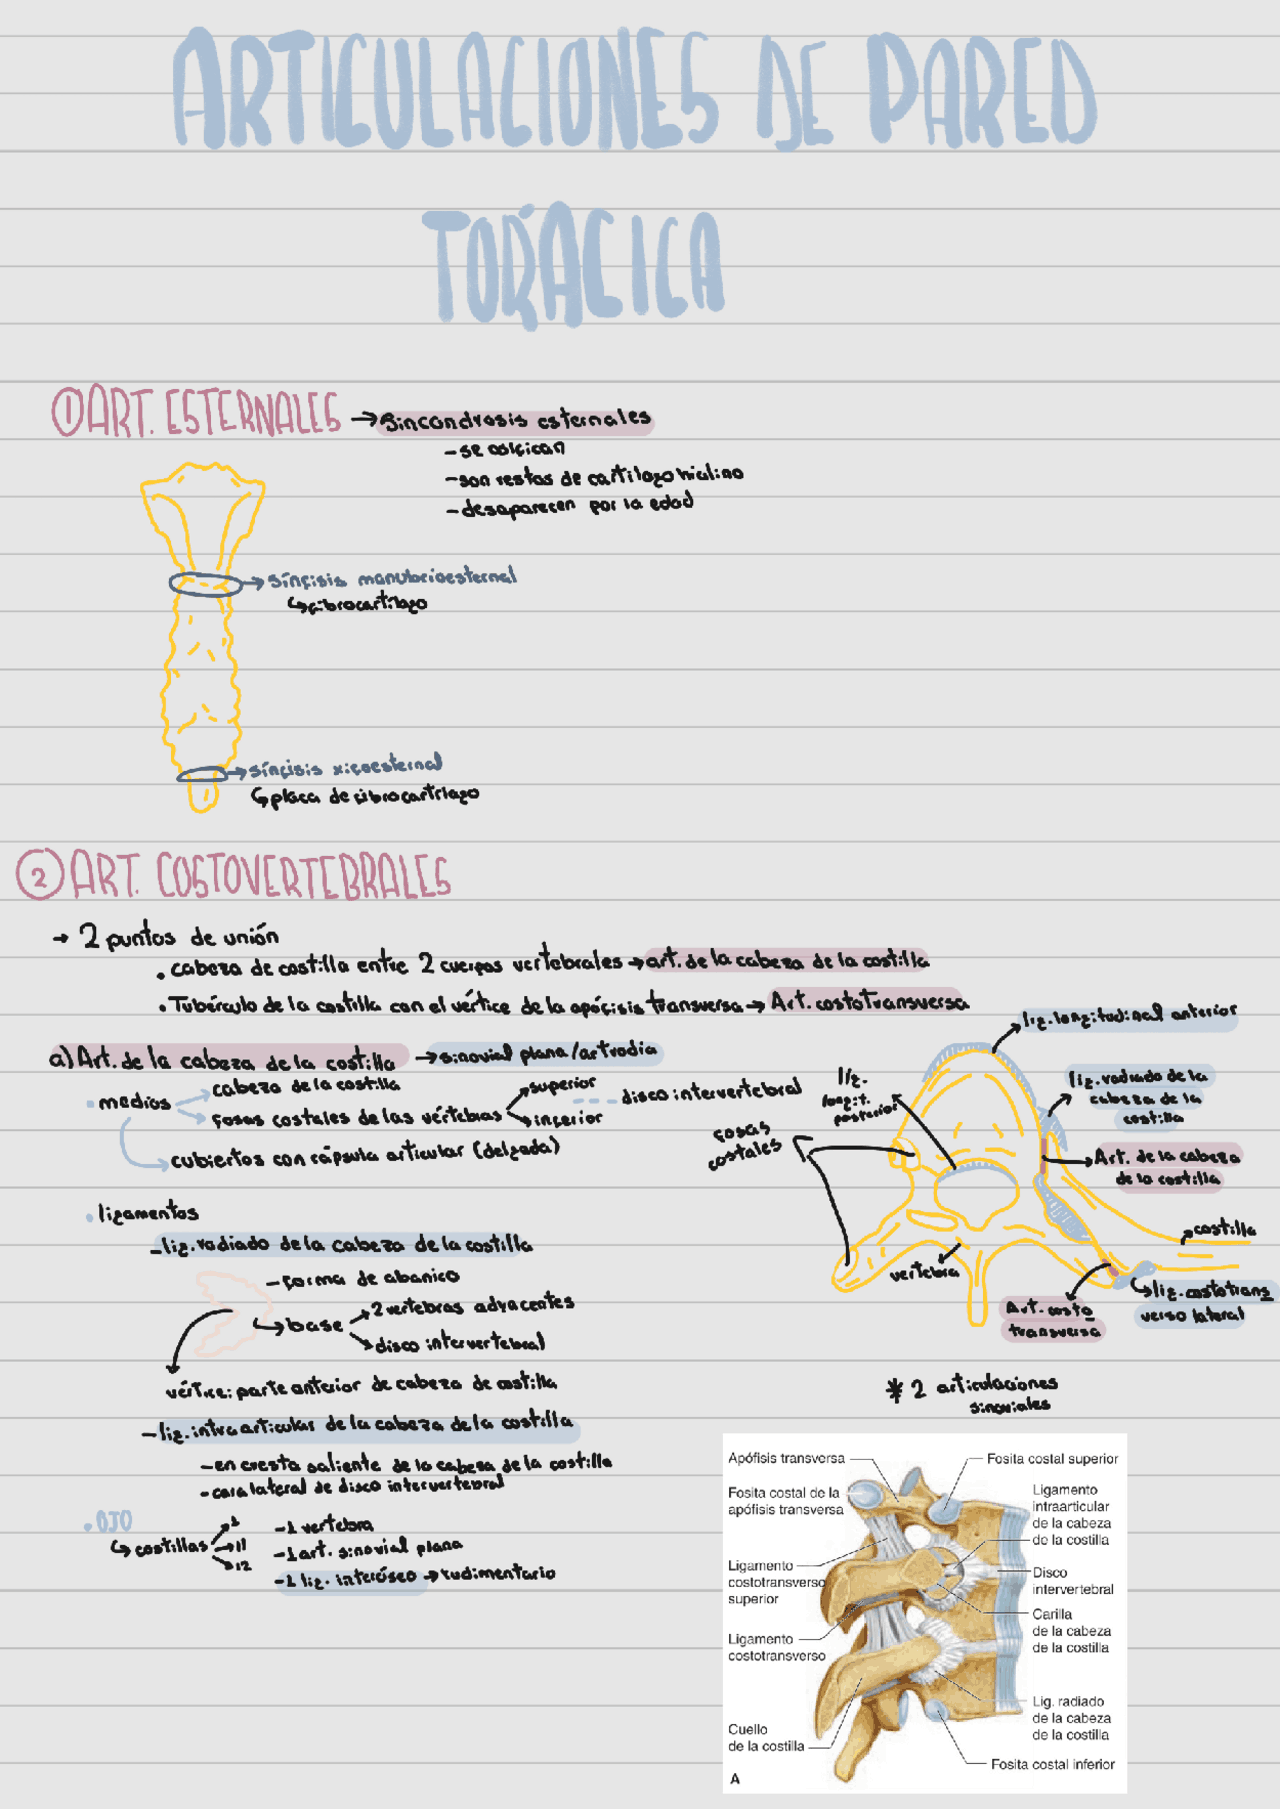 ARTICULACIONES DE PARED
TORÁCICA
① ART. ESTERNALES → Sincondrosis esternales
- se osifican
- son restos de cartílago hialino
- desaparecen por la edad
→ sínfisis manubrioesternal
↳ fibrocartílago
→ sínfisis xifoesternal
↳ placa de fibrocartílago
② ART. COSTOVERTEBRALES
→ 2 puntos de unión
• cabeza de costilla entre 2 cuerpos vertebrales → art. de la cabeza de la costilla
• Tubérculo de la costilla con el vértice de la apófisis transversa → Art. costotransversa
a) Art. de la cabeza de la costilla → sinovial plana/artrodia
• medios
cabeza de la costilla
fosas costales de las vértebras
superior
inferior
--- disco intervertebral
cubiertos con cápsula articular (delgada)
• ligamentos
- lig. radiado de la cabeza de la costilla
- forma de abanico
↳ base
→ 2 vertebras adyacentes
→ disco intervertebral
vértice: parte anterior de cabeza de costilla
- lig. intraarticular de la cabeza de la costilla
- en cresta saliente de la cabeza de la costilla
- cara lateral de disco intervertebral
• OJO
↳ costillas
1
11
12
- 1 vertebra
- 1 art. sinovial plana
- 1 lig. interóseo → rudimentario
lig. longitudinal anterior
lig. radiado de la
cabeza de la
costilla
Art. de la cabeza
de la costilla
costilla
lig. costotrans
verso lateral
Art. costo
transversa
vertebra
fosas
costales
lig.
longit.
posterior
* 2 articulaciones
sinoviales
Apófisis transversa
Fosita costal de la
apófisis transversa
Ligamento
costotransverso
superior
Ligamento
costotransverso
Cuello
de la costilla
A
Fosita costal superior
Ligamento
intraarticular
de la cabeza
de la costilla
Disco
intervertebral
Carilla
de la cabeza
de la costilla
Lig. radiado
de la cabeza
de la costilla
Fosita costal inferior